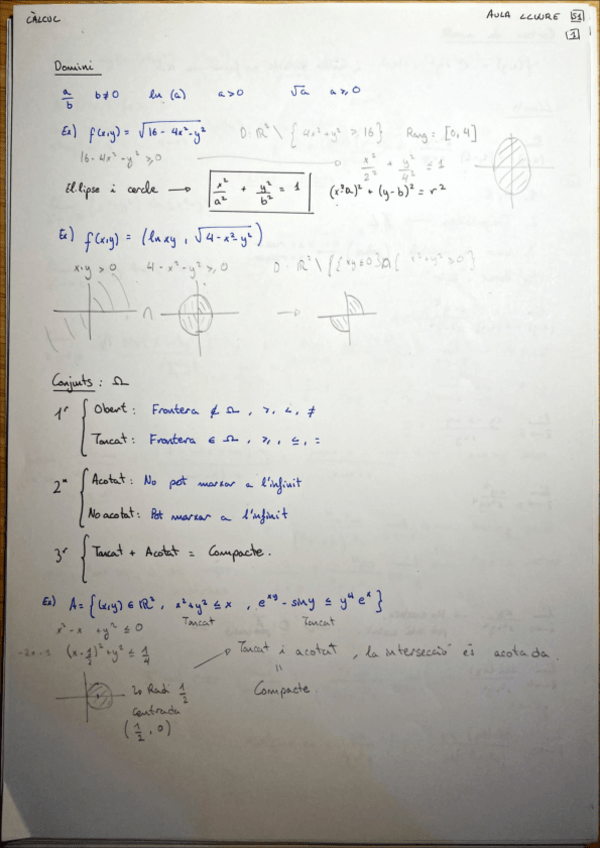 CÀLCUL
AULA LLIURE S1
1
Domini
a/b b≠0 ln(a) a>0 √a a≥0
Ex) f(x,y) = √(16-4x²-y²) D: ℝ² \ { 4x²+y² > 16 } Rang = [0,4]
16-4x²-y² ≥ 0 → x²/2² + y²/4² ≤ 1
El·lipse i cercle → x²/a² + y²/b² = 1 (x-a)² + (y-b)² = r²
Ex) f(x,y) = (ln xy, √(4-x²-y²))
x·y > 0 4-x²-y² ≥ 0 D: ℝ² \
∩ →
Conjunts: Ω
1r Obert: Frontera ∉ Ω, >, <, ≠
Tancat: Frontera ∈ Ω, ≥, ≤, =
2n Acotat: No pot marxar a l'infinit
No acotat: Pot marxar a l'infinit
3r Tancat + Acotat = Compacte.
Ex) A = {(x,y) ∈ ℝ², x²+y² ≤ x, e^xy - sin y ≤ y⁴ e^x}
x²-x +y² ≤ 0 Tancat Tancat
(x-1/2)² + y² ≤ 1/4 → Tancat i acotat, la intersecció és acotada.
=
Radi 1/2 Compacte.
Centrada
(1/2, 0)